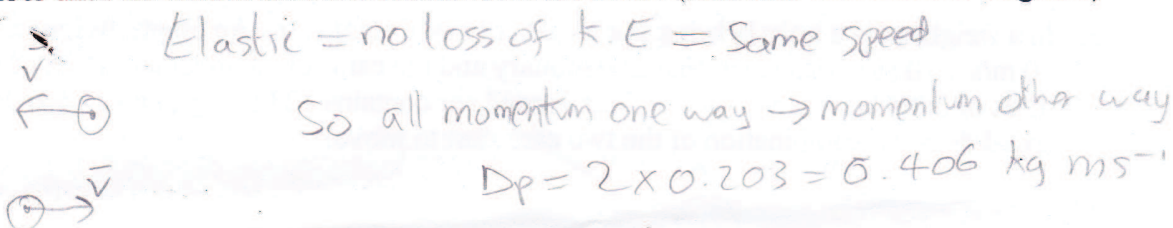 Elastic = no loss of k.E = Same speed
v
So all momentum one way → momentum other way
v̄
Dp = 2 x 0.203 = 0.406 kg ms⁻¹